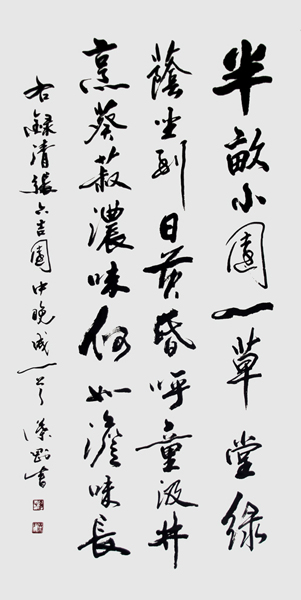 半畝小園一草堂綠
蔭坐到日黃昏呼童汲井
烹葵菽濃味何如澹味長
右錄清張六吉園中晚成一首 書